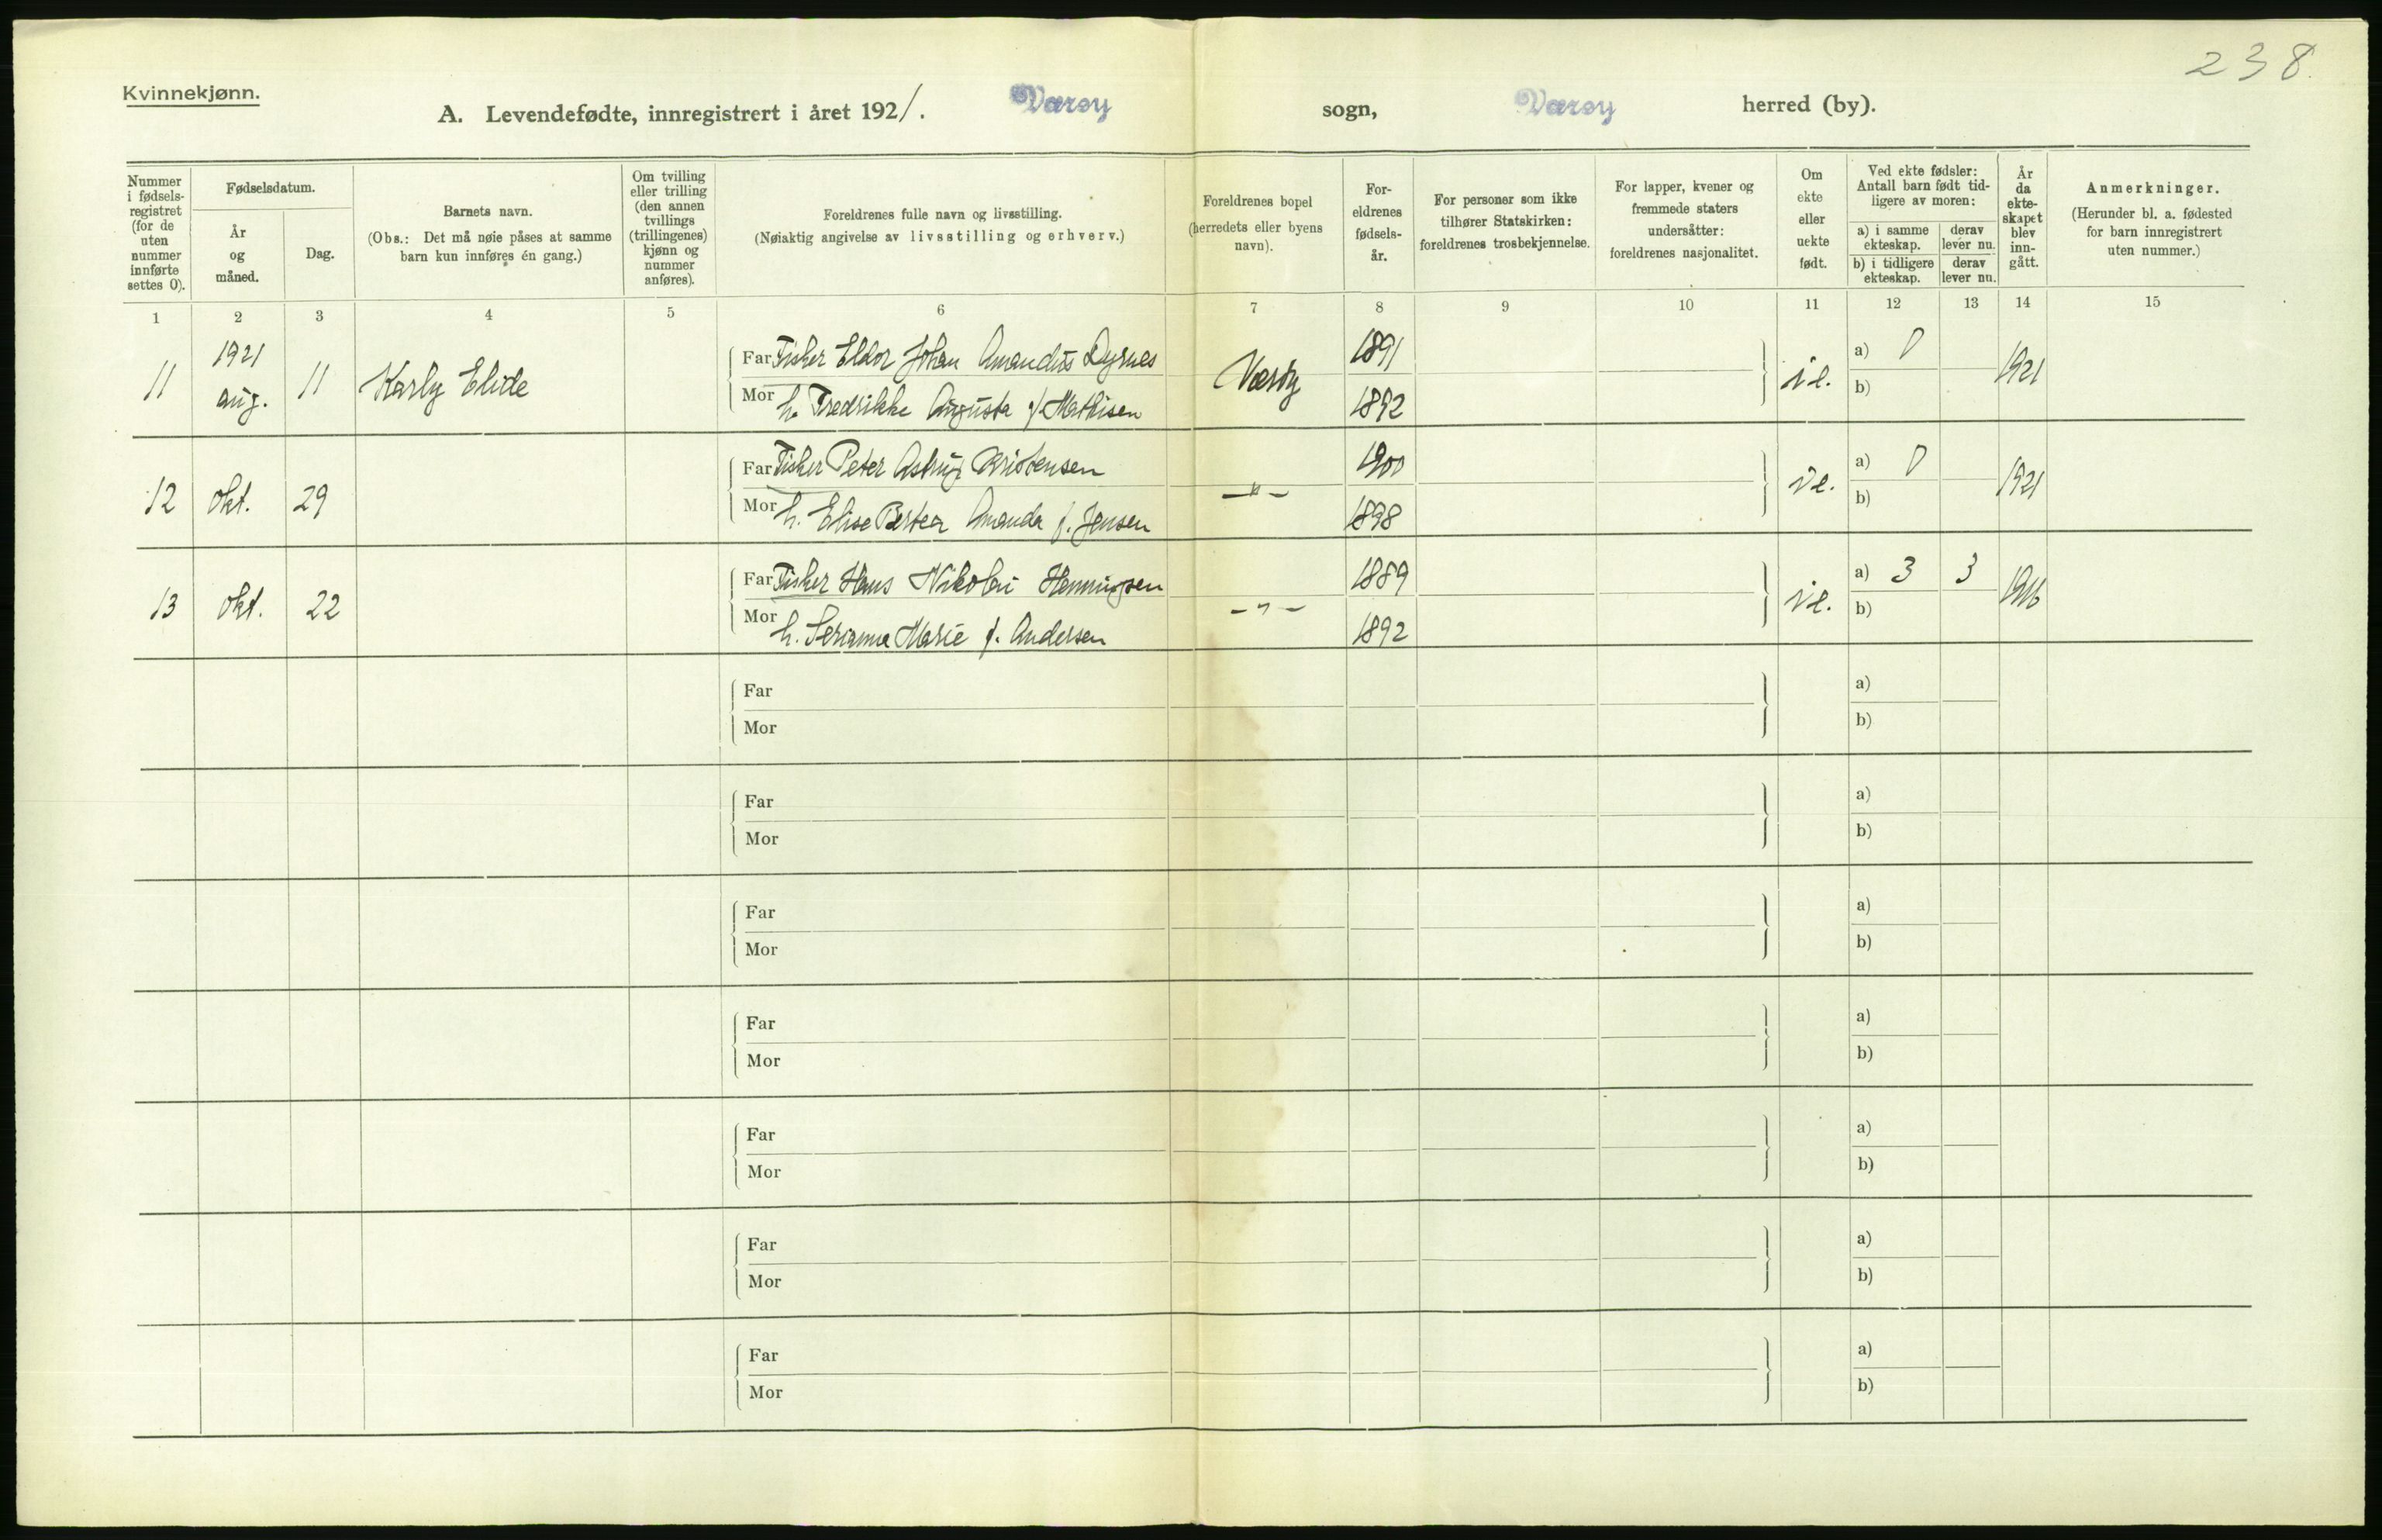 238.
Kvinnekjønn.
A. Levendefødte, innregistrert i året 1921. Værøy sogn, Værøy herred (by).
Nummer i fødselsregistret (for de uten nummer innførte settes 0).
Fødselsdatum.
År og måned.
Dag.
Barnets navn.
(Obs.: Det må nøie påses at samme barn kun innføres én gang.)
Om tvilling eller trilling (den annen tvillings (trillingenes) kjønn og nummer anføres).
Foreldrenes fulle navn og livsstilling.
(Nøiaktig angivelse av livsstilling og erhverv.)
Foreldrenes bopel (herredets eller byens navn).
Foreldrenes fødselsår.
For personer som ikke tilhører Statskirken: foreldrenes trosbekjennelse.
For lapper, kvener og fremmede staters undersåtter: foreldrenes nasjonalitet.
Om ekte eller uekte født.
Ved ekte fødsler: Antall barn født tidligere av moren:
a) i samme ekteskap.
derav lever nu.
b) i tidligere ekteskap.
derav lever nu.
År da ekteskapet blev inngått.
Anmerkninger.
(Herunder bl. a. fødested for barn innregistrert uten nummer.)
1 2 3 4 5 6 7 8 9 10 11 12 13 14 15
11 1921 aug. 11 Karly Elide
Far Fisker Eldor Johan Amandus Dyrnes Værøy 1891 a) 0 1921
Mor h. Fredrikke Augusta f. Mathisen 1892 b)
12 Okt. 29
Far Fisker Peter Kristensen -"- 1900 a) 0 1921
Mor h. Elise Amanda f. Jensen 1898 b)
13 Okt. 22
Far Fisker Hans Nikolai Henningsen -"- 1889 a) 3 3 1916
Mor h. Marie f. Andersen 1892 b)
Far a)
Mor b)
Far a)
Mor b)
Far a)
Mor b)
Far a)
Mor b)
Far a)
Mor b)
Far a)
Mor b)
Far a)
Mor b)